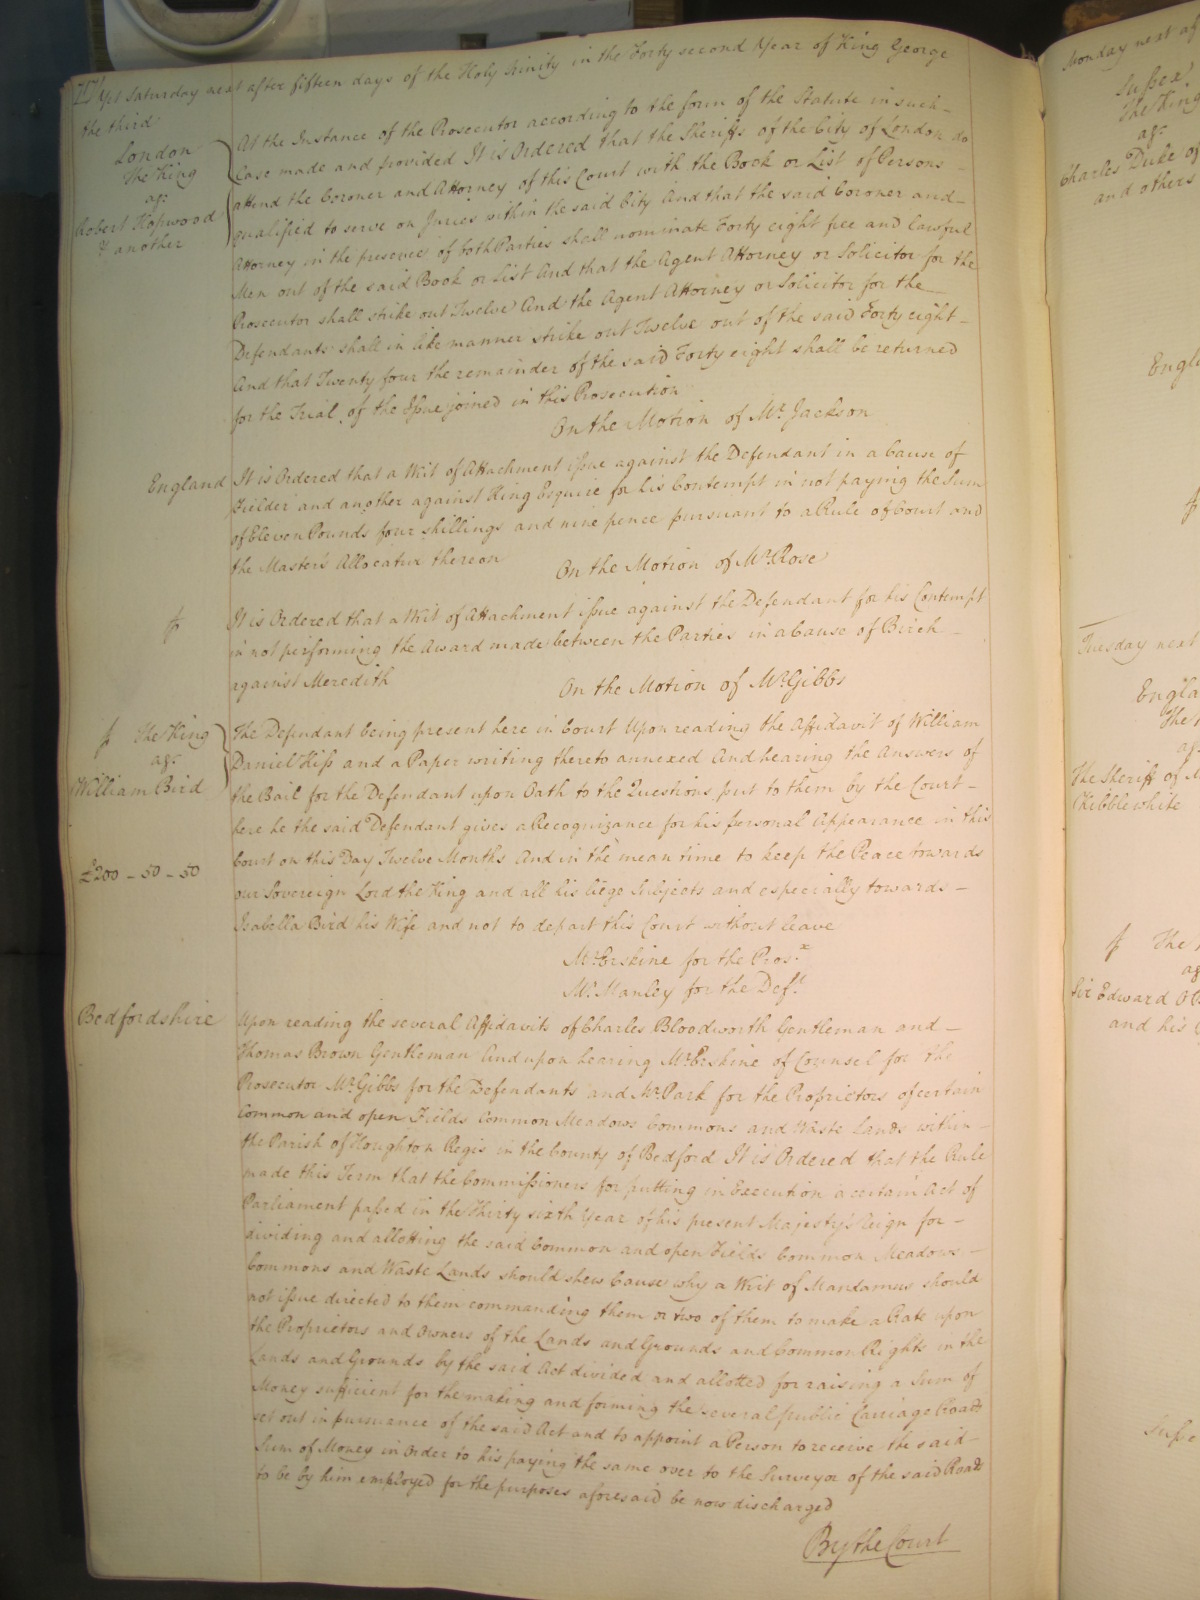 Yet Saturday next after fifteen days of the Holy Trinity in the Forty second Year of King George
the third
London
The King
agt
Robert Hopwood
& another
At the Instance of the Prosecutor according to the form of the Statute in such
Case made and provided It is Ordered that the Sheriffs of the City of London do
attend the Coroner and Attorney of this Court with the Book or List of Persons
qualified to serve on Juries within the said City And that the said Coroner and
Attorney in the presence of both Parties shall nominate Forty eight free and lawful
Men out of the said Book or List And that the Agent Attorney or Solicitor for the
Prosecutor shall strike out Twelve And the Agent Attorney or Solicitor for the
Defendants shall in like manner strike out Twelve out of the said Forty eight
And that Twenty four the remainder of the said Forty eight shall be returned
for the Trial of the Issue joined in this Prosecution
On the Motion of Mr. Jackson
England
It is Ordered that a Writ of Attachment issue against the Defendant in a Cause of
Fielder and another against King Esquire for his Contempt in not paying the Sum
of Eleven Pounds four shillings and nine pence pursuant to a Rule of Court and
the Masters Allocatur thereon
On the Motion of Mr. Rose
It is Ordered that a Writ of Attachment issue against the Defendant for his Contempt
in not performing the Award made between the Parties in a Cause of Birch
against Meredith
On the Motion of Mr. Gibbs
The King
agt
William Bird
The Defendant being present here in Court Upon reading the Affidavit of William
Daniel Kiss and a Paper writing thereto annexed And hearing the Answers of
the Bail for the Defendant upon Oath to the Questions put to them by the Court
here he the said Defendant gives a Recognizance for his personal Appearance in this
Court on this Day Twelve Months And in the mean time to keep the Peace towards
£200 - 50 - 50
our Sovereign Lord the King and all his liege Subjects and especially towards
Isabella Bird his Wife and not to depart this Court without leave
Mr. Erskine for the Pros.r
Mr. Manley for the Def.t
Bedfordshire
Upon reading the several Affidavits of Charles Bloodworth Gentleman and
Thomas Brown Gentleman And upon hearing Mr. Erskine of Counsel for the
Prosecutor Mr. Gibbs for the Defendants and Mr. Park for the Proprietors of certain
Common and open Fields Common Meadows Commons and Waste Lands within
the Parish of Houghton Regis in the County of Bedford It is Ordered that the Rule
made this Term that the Commissioners for putting in Execution a certain Act of
Parliament passed in the Thirty sixth Year of his present Majesty's Reign for
dividing and allotting the said Common and open Fields Common Meadows
Commons and Waste Lands should shew Cause why a Writ of Mandamus should
not issue directed to them commanding them or two of them to make a Rate upon
the Proprietors and Owners of the Lands and Grounds and Common Rights in the
Lands and Grounds by the said Act divided and allotted for raising a Sum of
Money sufficient for the making and forming the several public Carriage Roads
set out in pursuance of the said Act and to appoint a Person to receive the said
Sum of Money in Order to his paying the same over to the Surveyor of the said Roads
to be by him employed for the purposes aforesaid be now discharged
By the Court
Monday next
Sussex
The King
agt
Charles Duke of
and others
Tuesday next
The Sheriff of
Kibblewhite
Sir Edward
and his